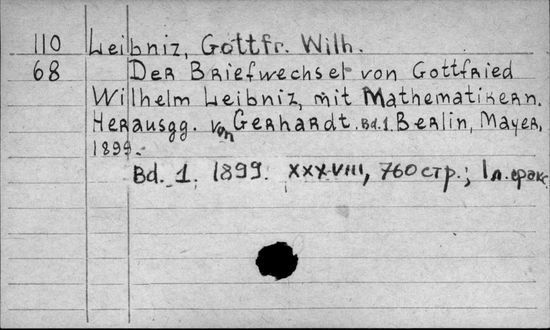 110 Leibniz, Gottfr. Wilh.
68 Der Briefwechsel von Gottfried
Wilhelm Leibniz, mit Mathematikern.
Herausgg. von Gerhardt. Bd.1. Berlin, Mayer,
1899.
Bd. 1. 1899. XXXVIII, 760 стр.; 1 л. факс.